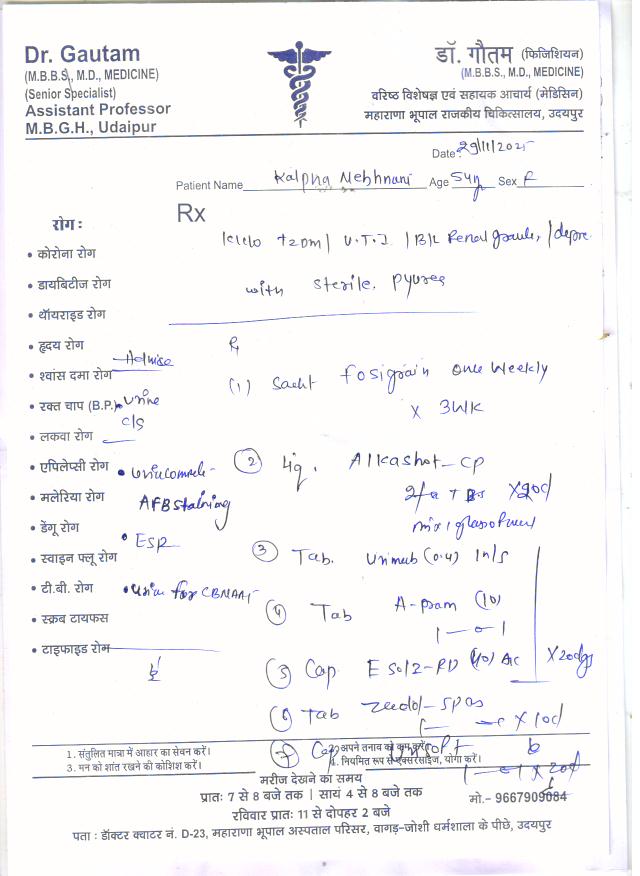 Dr. Gautam
(M.B.B.S), M.D., MEDICINE)
(Senior Specialist)
Assistant Professor
M.B.G.H., Udaipur
डॉ. गौतम (फिजिशियन)
(M.B.B.S., M.D., MEDICINE)
वरिष्ठ विशेषज्ञ एवं सहायक आचार्य (मेडिसिन)
महाराणा भूपाल राजकीय चिकित्सालय, उदयपुर
Date 29/11/2025
Patient Name Kalpna Mebhnani Age 54y Sex F
Rx
T2DM / U.T.I / B/L Renal
with sterile. Pyurea
रोग :
• कोरोना रोग
• डायबिटीज रोग
• थॉयराइड रोग
• हृदय रोग
• श्वांस दमा रोग
• रक्त चाप (B.P.)
• लकवा रोग
• एपिलेप्सी रोग
• मलेरिया रोग
• डेंगू रोग
• स्वाइन फ्लू रोग
• टी.बी. रोग
• स्क्रब टायफस
• टाइफाइड रोग
Advise
• Urine
C/S
AFB Staining
• ESR
• Urine for CBNAAT
(1) Sachet Fosigrain Once Weekly
X 3WK
(2) Liq. Alkashot-CP
X 20d
(3) Tab. Urimub (0.4) 1 n/s
(4) Tab A-pram (10)
1-0-1
(5) Cap Esoz-RD (40) AC
X 20dys
(6) Tab Zerodol-Spas
X 10d
(7) Cap
X 20d
1. संतुलित मात्रा में आहार का सेवन करें।
2. अपने तनाव को कम करें।
3. मन को शांत रखने की कोशिश करें।
4. नियमित रूप से एक्सरसाइज, योगा करें।
मरीज देखने का समय
प्रातः 7 से 8 बजे तक | सायं 4 से 8 बजे तक
मो.- 9667909084
रविवार प्रातः 11 से दोपहर 2 बजे
पता : डॉक्टर क्वाटर नं. D-23, महाराणा भूपाल अस्पताल परिसर, वागड़-जोशी धर्मशाला के पीछे, उदयपुर